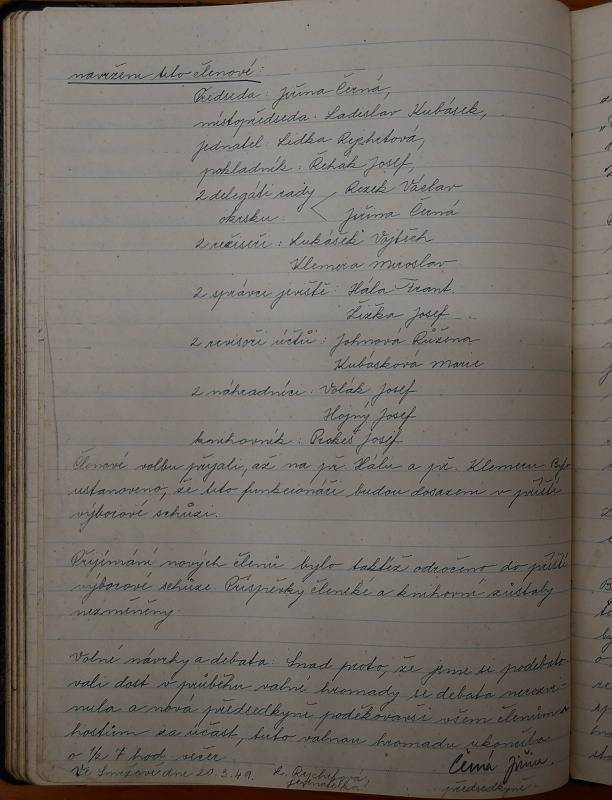 navrženi tito členové:
Předseda: Jiřina Černá,
místopředseda: Ladislav Kubásek,
jednatel: Lidka Rychetová,
pokladník: Řehák Josef,
2 delegáti rady Rezek Václav
okrsku: Jiřina Černá
2 režiseři: Lukášek Vojtěch
Klemera Miroslav
2 správci jeviště: Hála Frant.
Žižka Josef
2 revisoři účtů: Johnová Růžena
Kubásková Marie
2 náhradníci: Volák Josef
Hojný Josef
knihovník: Prokeš Josef
Členové volbu přijali, až na př. Hálu a př. Klemeru. Bylo
ustanoveno, že tito funkcionáři budou dosazeni v příští
výborové schůzi.
Přijímání nových členů bylo taktéž odročeno do příští
výborové schůze. Příspěvky členské a knihovní zůstaly
nezměněny.
Volné návrhy a debata: Snad proto, že jsme si podebato-
vali dost v průběhu valné hromady se debata nerozvi-
nula a nová předsedkyně poděkovavši všem členům a
hostům za účast, tuto valnou hromadu ukončila
o ½ 7 hod. večer.
Ve Smržově dne 20.3.49. L. Rychetová Černá Jiřina.
jednatelka předsedkyně.